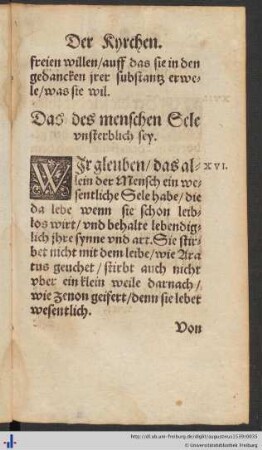 Der Kyrchen.
freien willen/auff das sie in den
gedancken jrer substantz erwe-
le/was sie wil.
Das des menschen Sele
vnsterblich sey.
WJr gleuben/das al- XVI.
lein der Mensch ein we-
sentliche Sele habe/die
da lebe wenn sie schon leib-
los wirt/vnd behalte lebendig-
lich jhre synne vnd art. Sie stir-
bet nicht mit dem leibe/wie Ara
tus geuchet/stirbt auch nicht
vber ein klein weile darnach/
wie Zenon geifert/denn sie lebet
wesentlich.
Von
© Universitätsbibliothek Freiburg